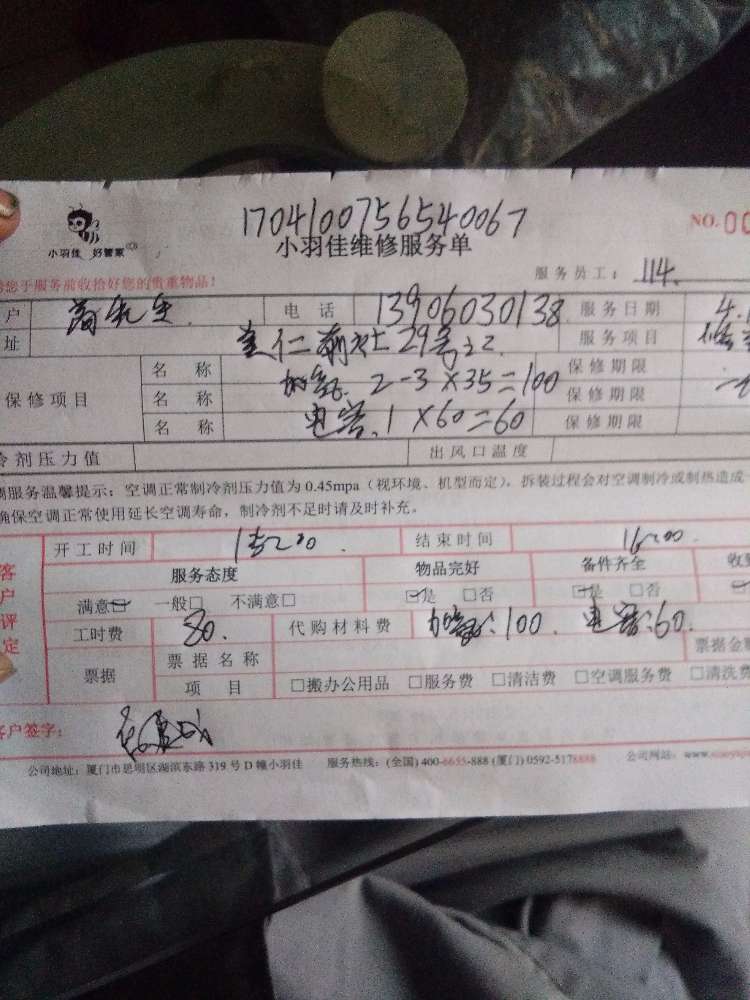 1704100756540067
小羽佳 好管家
小羽佳维修服务单
NO.00
您于服务前收拾好您的贵重物品！
服务员工： 114.
户 先生 电话 13906030138 服务日期 4.1
址 仁 社29号之二 服务项目
保修项目 名称 加氟 2-3×35=100 保修期限
名称 电容 1×60=60 保修期限
名称 保修期限
冷剂压力值 出风口温度
调服务温馨提示：空调正常制冷剂压力值为 0.45mpa（视环境、机型而定），拆装过程会对空调制冷或制热造成
确保空调正常使用延长空调寿命，制冷剂不足时请及时补充。
客户评定
开工时间 15:00 结束时间 16:00
服务态度 物品完好 备件齐全 收
满意☑ 一般□ 不满意□ ☑是 □否 ☑是 □否
工时费 80. 代购材料费 加氟:100. 电容:60.
票据 票据名称 票据金额
项目 □搬办公用品 □服务费 □清洁费 □空调服务费 □清洗费
客户签字：
公司地址：厦门市思明区湖滨东路 319 号 D 幢小羽佳 服务热线：(全国) 400-6655-888 (厦门) 0592-5178888 公司网站：www.xiaoyu